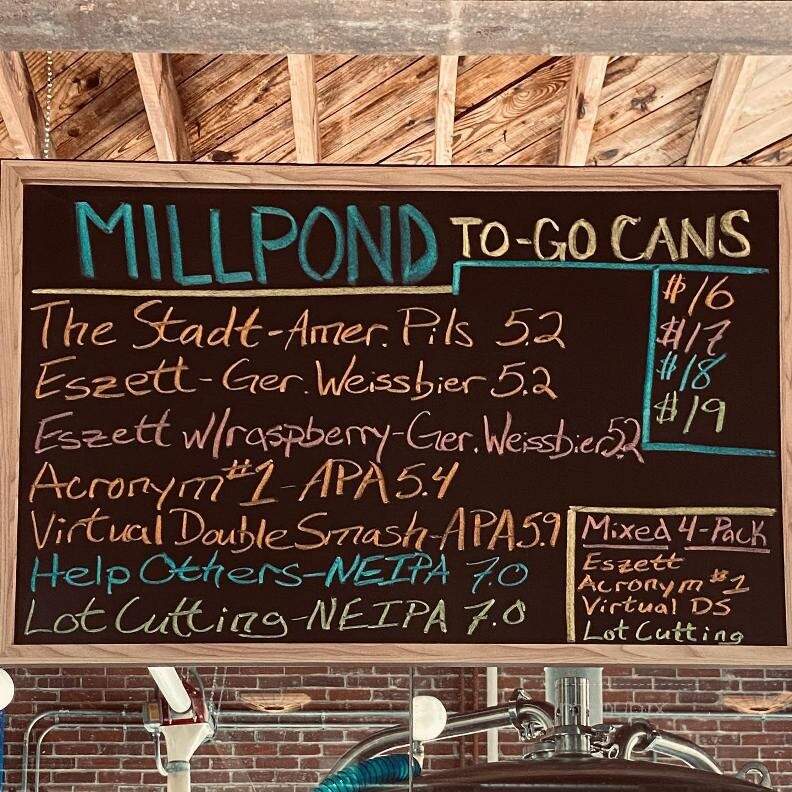 MILLPOND TO-GO CANS
$16
$17
$18
$19
The Stadt-Amer. Pils 5.2
Eszett-Ger. Weissbier 5.2
Eszett w/raspberry-Ger. Weissbier 5.2
Acronym #1-APA 5.4
Virtual Double Smash-APA 5.9
Help Others-NEIPA 7.0
Lot Cutting-NEIPA 7.0
Mixed 4-Pack
Eszett
Acronym #1
Virtual DS
Lot Cutting